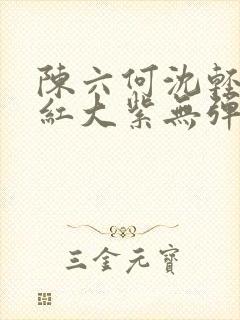 陳六何沈輕
紅大紫無彈
三金元寶